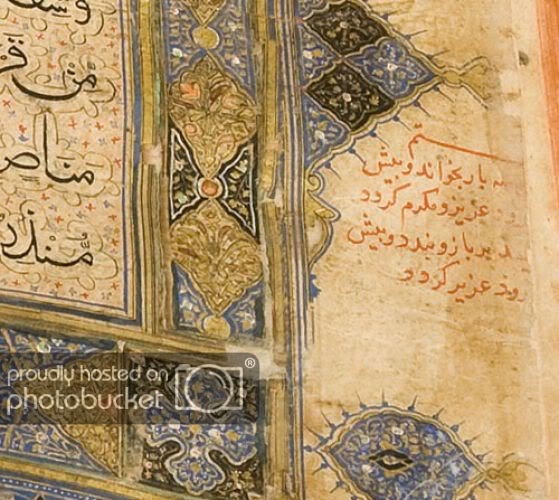 وشه
من قر
مناص
منذر
ستم
سه بار بخواند و پیش
رود عزیز و مکرم گردد
بر بازو بندد و پیش
رود عزیز گردد
proudly hosted on
photobucket®